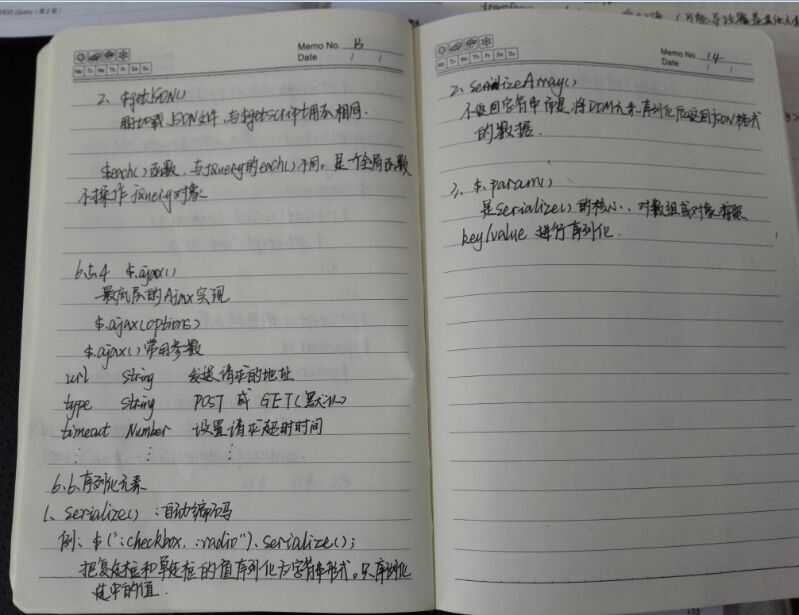 Memo No. 13
Date / /
Mo Tu We Th Fr Sa Su
2、$.getJSON()
用以加载JSON文件,与$.getScript()用法相同.
$.each()函数,与jQuery的each()不同。是一个全局函数
不操作jquery对象.
6.5.4 $.ajax()
最底层的Ajax实现
$.ajax(options)
$.ajax()常用参数
url String 发送请求的地址
type String POST 或 GET(默认)
timeout Number 设置请求超时时间
6.6.序列化元素
1、serialize() :自动编码
例: $(":checkbox, :radio").serialize();
把复选框和单选框的值序列化为字符串形式。只序列化
选中的值.
Memo No. 14
Date / /
Mo Tu We Th Fr Sa Su
2、serializeArray()
不返回字符串 而是,将DOM元素序列化后返回JSON格式
的数据.
3、$.param()
是serialize()的核心.,对数组或对象按照
key/value 进行序列化.